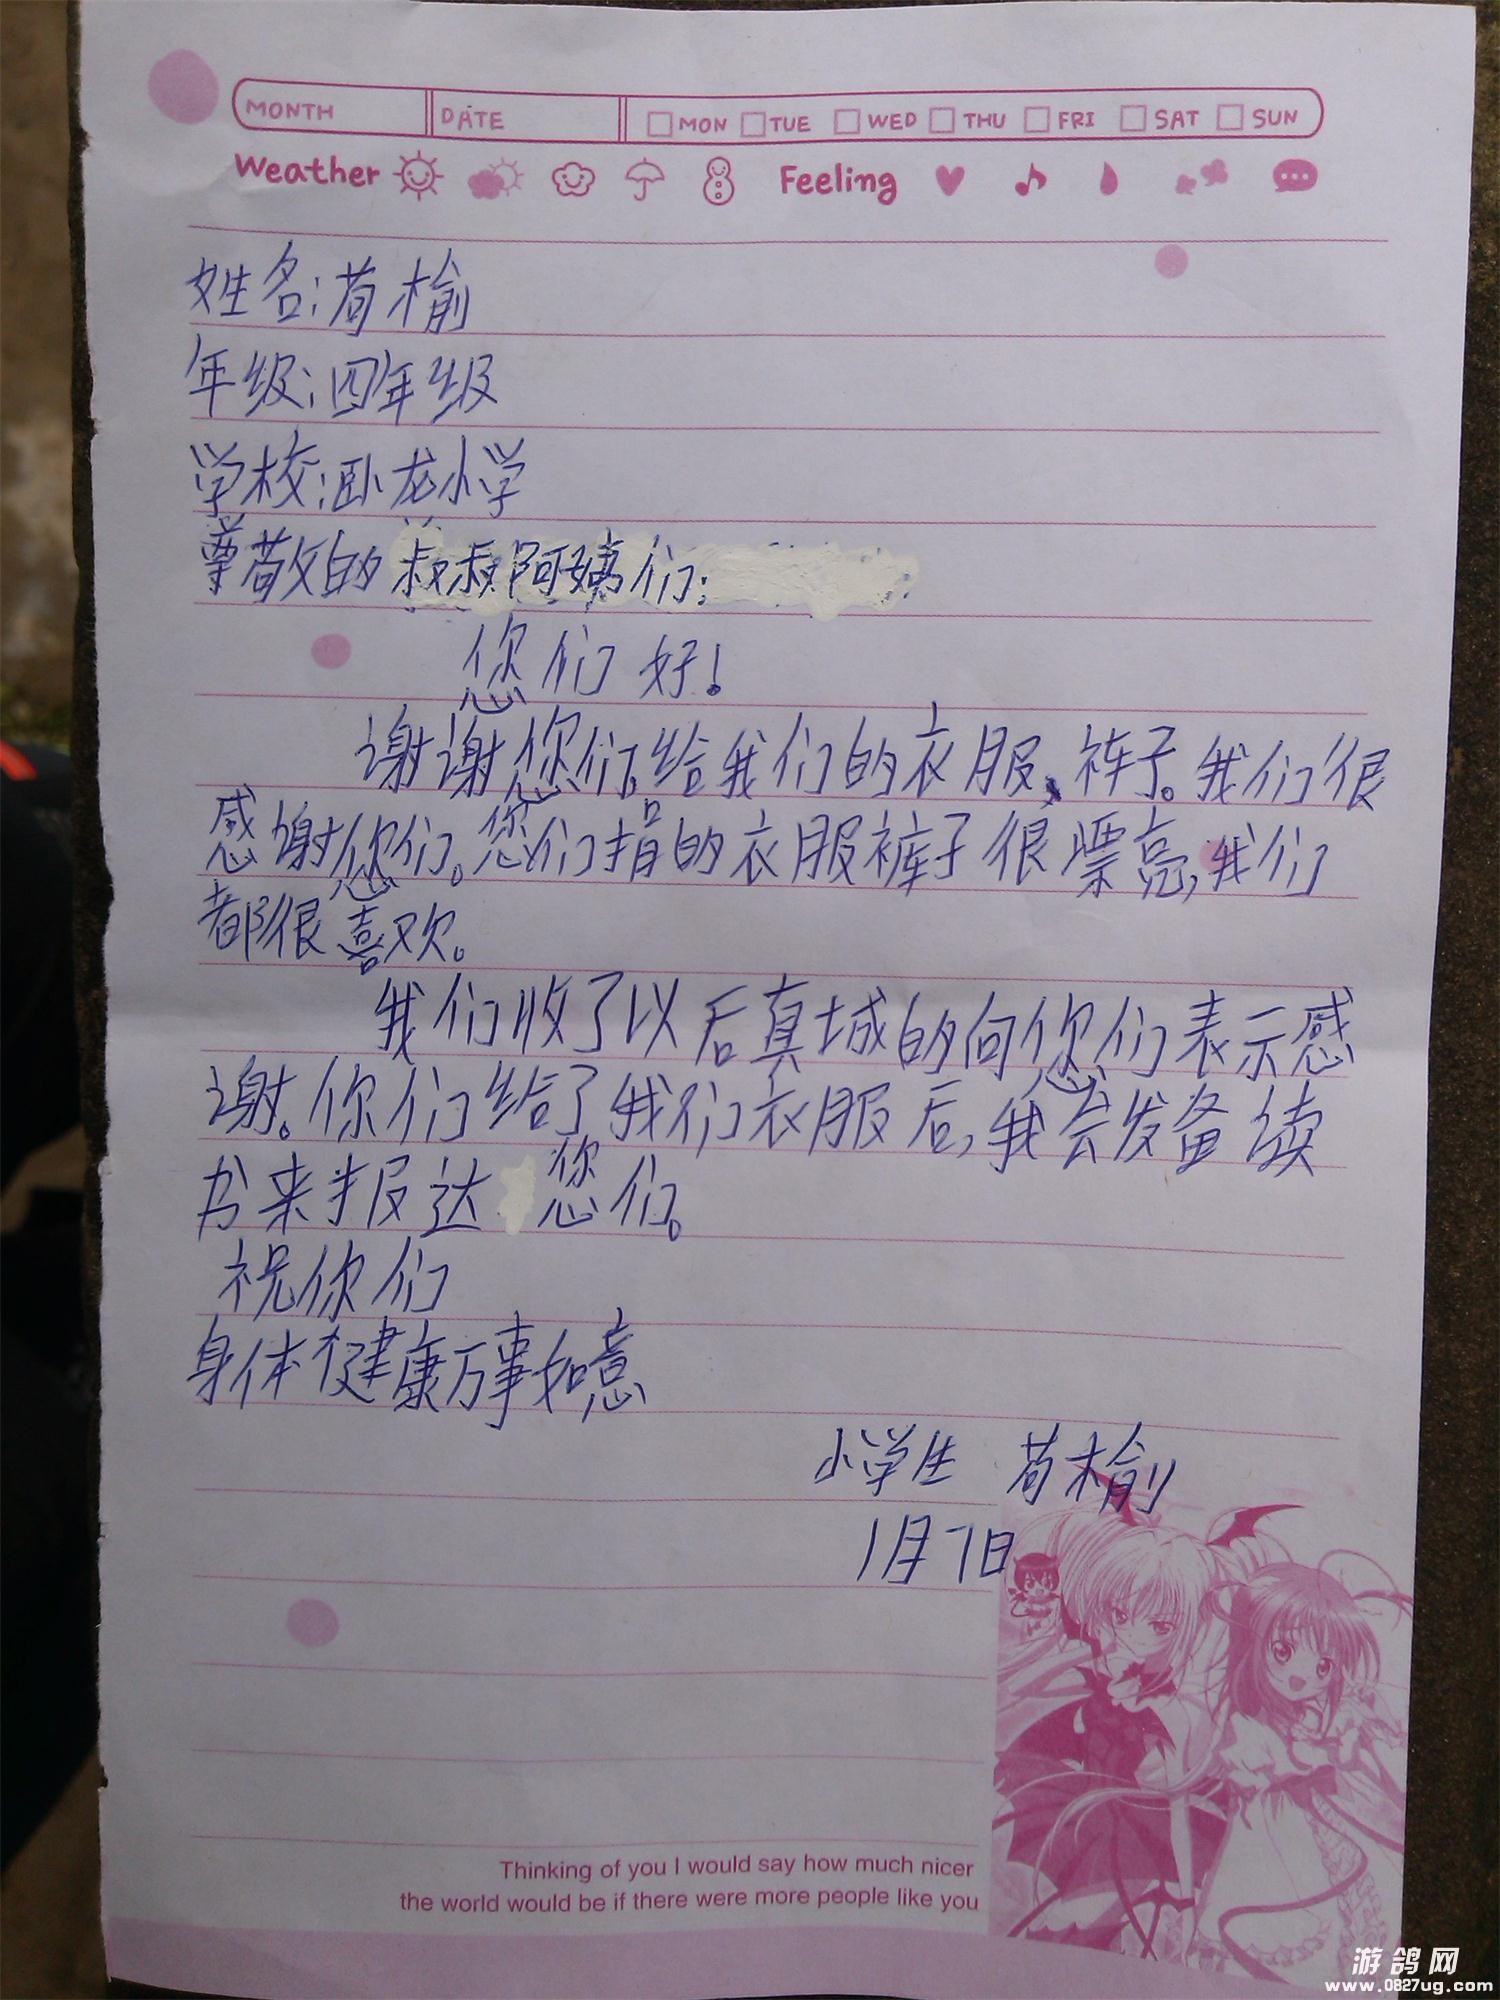 MONTH DATE MON TUE WED THU FRI SAT SUN
Weather Feeling
姓名:苟榆
年级:四年级
学校:卧龙小学
尊敬的叔叔阿姨们:
您们好!
谢谢您们给我们的衣服、裤子。我们很
感谢您们。您们捐的衣服裤子很漂亮,我们
都很喜欢。
我们收了以后真城的向您们表示感
谢。你们给了我们衣服后,我会发备读
书来报达您们。
祝你们
身体健康万事如意
小学生 苟榆
1月7日
Thinking of you I would say how much nicer
the world would be if there were more people like you
游鸽网
www.0827ug.com